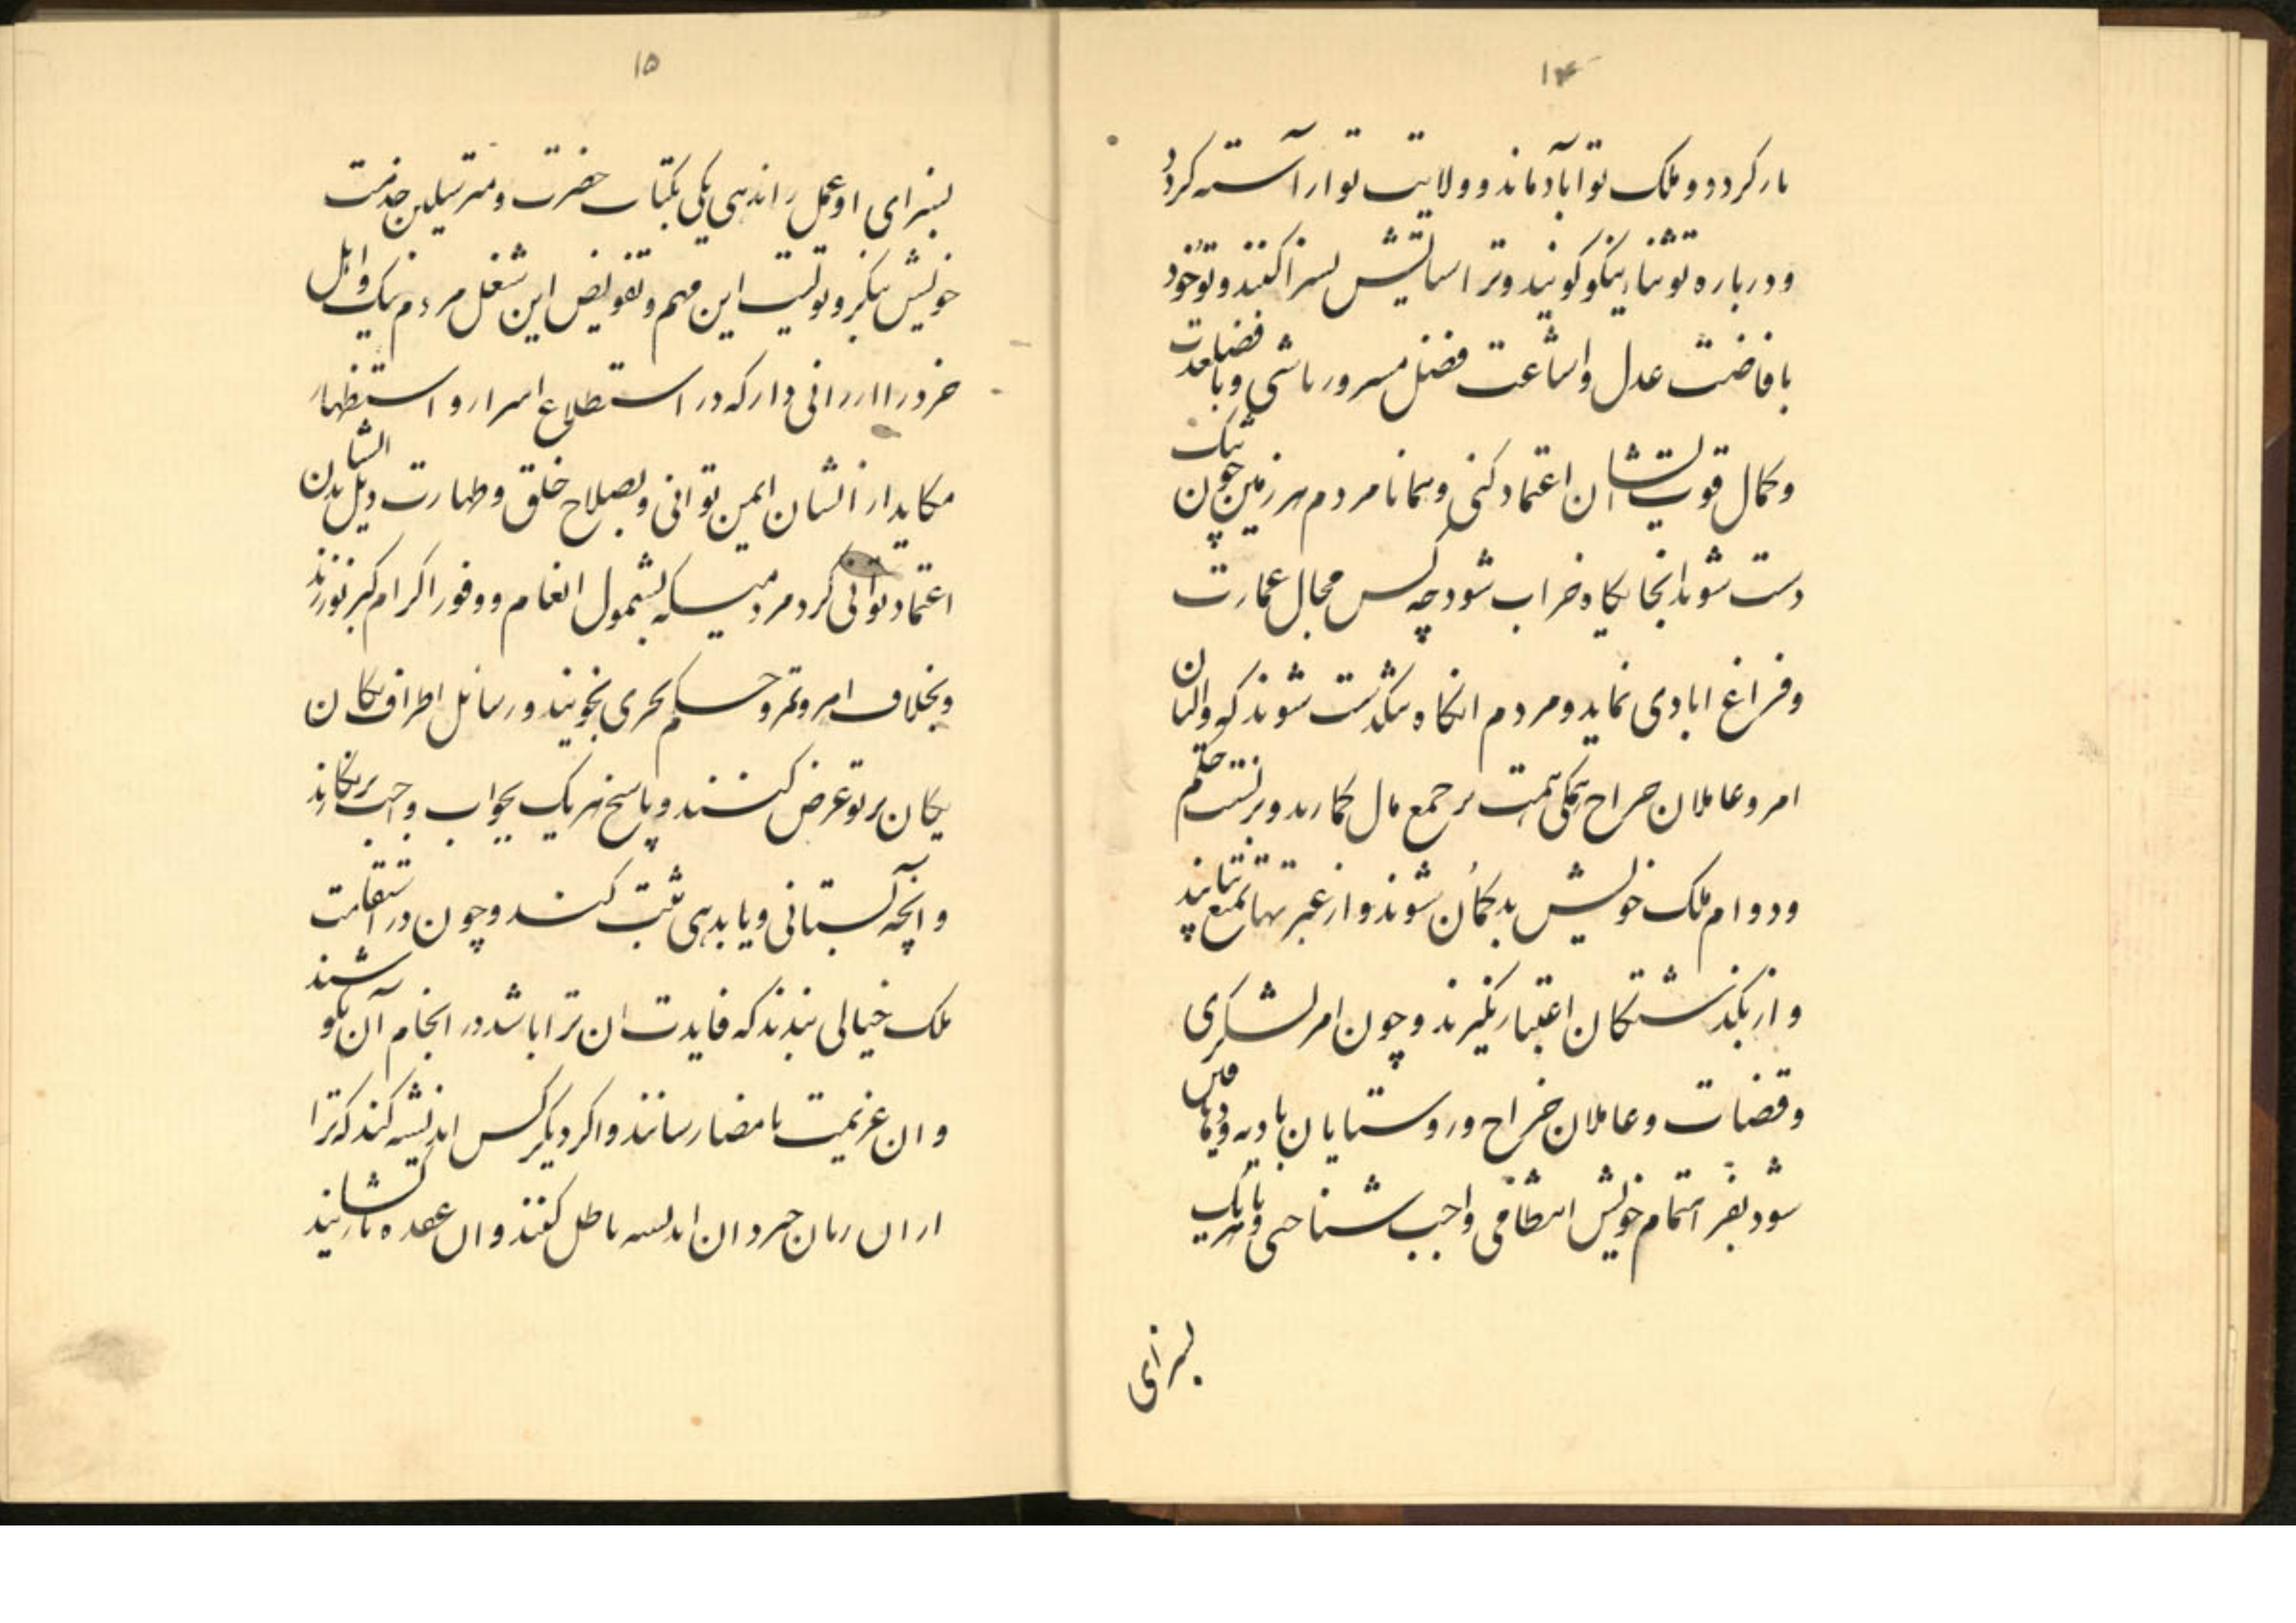 ۱۴
بار کردد و ملک تو اباد ماند و ولایت تو اراسته کردد
و درباره تو ثنا نیکو کویند و ترا ستایش بسزا کنند و تو خود
بافاضت عدل و اشاعت فضل مسرور باشی و با
و کمال قوت ایشان اعتماد کنی و همانا مردم هر زمین چون تنک
دست شوند انجا بکاه خراب شود چه کس مجال عمارت
و فراغ ابادی نماید و مردم انکاه تنکدست شوند که والیان
امر و عاملان خراج همکی همت بر جمع مال کمارند و بر
و دوام ملک خویش بدکمان شوند و از عبرتها تمتع نیابند
و از بکذشتکان اعتبار نکیرند و چون امر لشکری
و قضات و عاملان خراج و روستایان بادیه و دهاقین
شود بفر اهتمام خویش انتظامی واجب شناختی و با هریک
بسزای
۱۵
بسزای او عمل راندی یکی بکتاب حضرت و مترسلین خدمت
خویش بنکر و تولیت این مهم و تفویض این شغل مردم نیک و اهل
خرد را ارزانی دار که در استطلاع اسرار و استظهار
مکاید از ایشان ایمن توانی و بصلاح خلق و طهارت ذیل ایشان
اعتماد توانی کرد مردمیکه بشمول انعام و وفور اکرام کبر نورزند
و بخلاف امر و تمرد حکم تحری نجویند و رسائل اطراف کان
یکان بر تو عرض کنند و پاسخ هریک بجواب واجب برنکارند
و انچه بستانی و یا بدهی ثبت کنند و چون در استقامت
ملک خیالی بندند که فایدت ان ترا باشد در انجام آن بکوشند
و ان عزیمت بامضا رسانند و اکر دیکر کس اندیشه کند که ترا
از ان زیان خیزد ان اندیسه باطل کنند و ان عقده